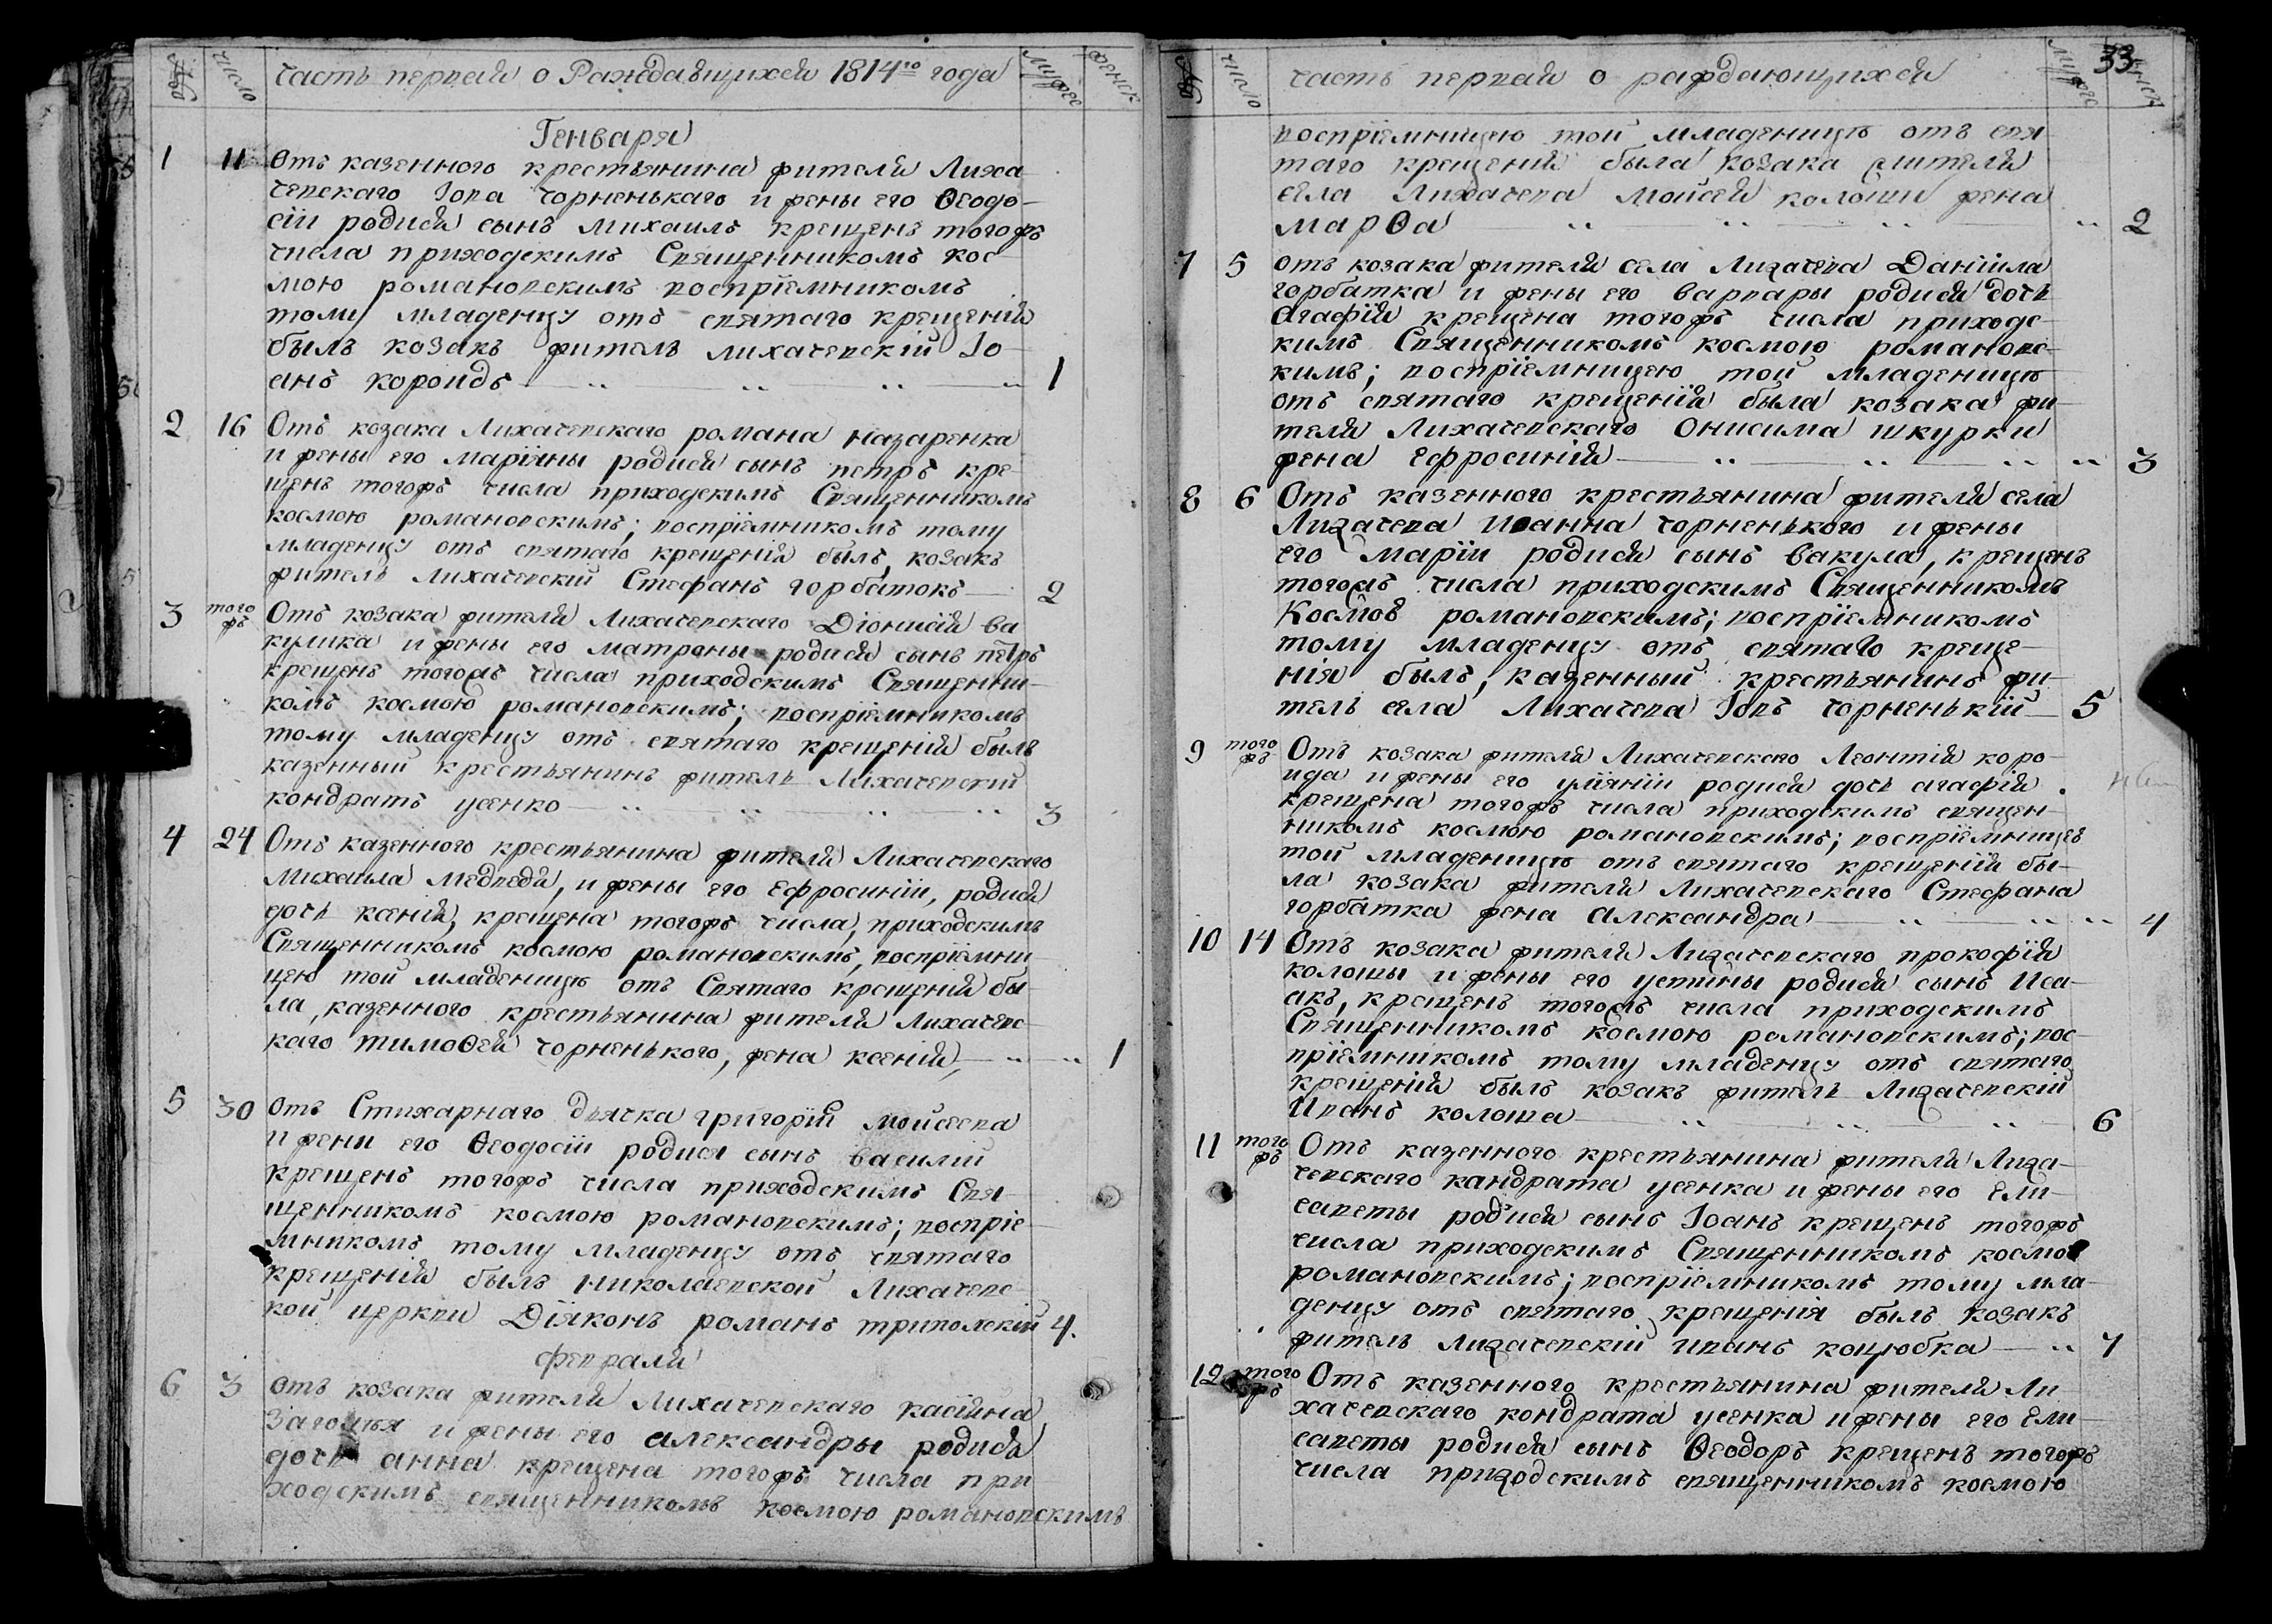 Число
Часть первая о Раждавшихся 1814го года
Мужес
Женск
Генваря
1 11 Отъ казенного крестьянина жителя Лиха
чевскаго Іова Чорненькаго и жены его Ѳеодо-
сіи родися сынъ Михаилъ крещенъ тогожъ
числа приходскимъ Священникомъ Кос-
мою Романовскимъ воспріемникомъ
тому младенцу отъ святаго крещенія
былъ козакъ житель Лихачевскій Іо-
анъ Коровдъ 1
2 16 Отъ козака Лихачевскаго Романа Назаренка
и жены его Маріяны родися сынъ Петръ кре-
щенъ тогожъ числа приходскимъ Священникомъ
Космою Романовскимъ; воспріемникомъ тому
младенцу отъ святаго крещенія былъ, козакъ
житель Лихачевскій Стефанъ Горбатокъ 2
3 того жъ Отъ козака жителя Лихачевскаго Діонисія Ва
кулика и жены его Матроны родися сынъ Петръ
крещенъ тогожъ числа приходскимъ Священни-
комъ Космою Романовскимъ; воспріемникомъ
тому младенцу отъ святаго крещенія былъ
казенный крестьянинъ житель Лихачевскій
Кондратъ Усенко 3
4 24 Отъ казенного крестьянина жителя Лихачевскаго
Михаила Медведя, и жены его Ефросиніи, родися
дочь Ксенія, крещена тогожъ числа, приходскимъ
Священникомъ Космою Романовскимъ, воспріемни-
цею той младеницѣ отъ Святаго крещенія бы-
ла, казенного крестьянина жителя Лихачевс-
каго Тимоѳея Чорненького, жена Ксенія, 1
5 30 Отъ Стихарнаго Дьячка Григорія Мойсеева
и жени его Ѳеодосіи родися сынъ Василій
крещенъ тогожъ числа приходскимъ Свя-
щенникомъ Космою Романовскимъ; воспріе-
мникомъ тому младенцу отъ святаго
крещенія былъ Николаевской Лихачевс-
кой церкви Діяконъ Романъ Триполскій 4.
Февраля
6 3 Отъ козака жителя Лихачевскаго Касіяна
и жены его Александры родися
дочь Анна крещена тогожъ числа при
ходскимъ священникомъ Космою Романовскимъ
33
Число
Часть первая о раждающихся
воспріемницею той младеницѣ отъ свя
таго крещенія была козака жителя
села Лихачева Мойсея Колоши жена
Марѳа 2
7 5 отъ козака жителя села Лихачева Даніила
Горбатка и жены его Варвары родися дочь
Агафія крещена тогожъ числа приходс-
кимъ Священникомъ Космою Романовс-
кимъ; воспріемницею той младеницѣ
отъ святаго крещенія была козака жи-
теля Лихачевскаго Онисима Шкурки
жена Ефросинія 3
8 6 Отъ казенного крестьянина жителя села
Лихачева Иоанна Чорненького и жены
его Маріи родися сынъ Вакула, крещенъ
тогожъ числа приходскимъ Священникомъ
Космою Романовскимъ; воспріемникомъ
тому младенцу отъ святаго креще-
нія былъ, казенный крестьянинъ жи-
тель села Лихачева Іовъ Чорненькій 5
9 того жъ Отъ козака жителя Лихачевскаго Леонтія Коро-
вда и жены его Уліяніи родися дочь Агафія
крещена тогожъ числа приходскимъ священ-
никомъ Космою Романовскимъ; воспріемницею
той младеницѣ отъ святаго крещенія бы-
ла козака жителя Лихачевскаго Стефана
Горбатка жена Александра 4
10 14 Отъ козака жителя Лихачевскаго Прокофія
Колошы и жены его Устины родися сынъ Иса-
акъ, крещенъ тогожъ числа приходскимъ
Священникомъ Космою Романовскимъ; вос-
пріемникомъ тому младенцу отъ святаго
крещенія былъ козакъ житель Лихачевскій
Иванъ Колоша 6
11 того жъ Отъ казенного крестьянина жителя Лиха-
чевского Кандрата Усенка и жены его Ели-
саветы родися сынъ Іоанъ крещенъ тогожъ
числа приходскимъ Священникомъ Космою
Романовскимъ; воспріемникомъ тому мла-
денцу отъ святаго крещенія былъ козакъ
житель Лихачевскій Иванъ Коцюбка 7
12 того жъ Отъ казенного крестьянина жителя Ли
хачевскаго Кондрата Усенка и жены его Ели
саветы родися сынъ Ѳеодоръ крещенъ тогожъ
числа приходскимъ священникомъ Космою